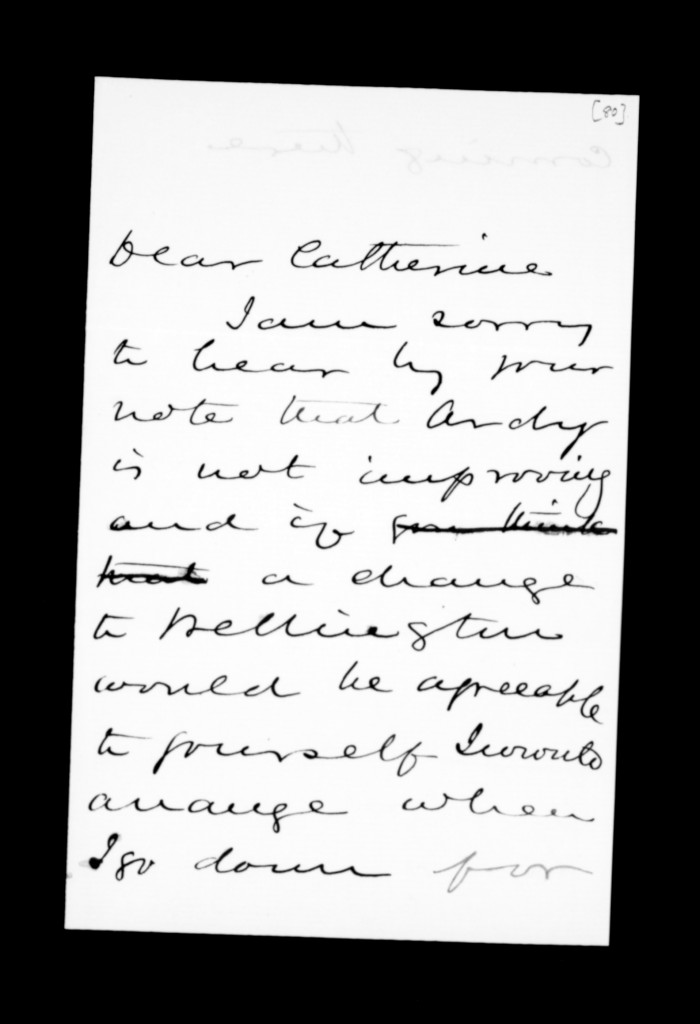 [80]
Dear Catherine
I am sorry
to hear by your
note that Ardy
is not improving
and if you think
that a change
to Wellington
would be agreeable
to yourself I would
arrange when
I go down for